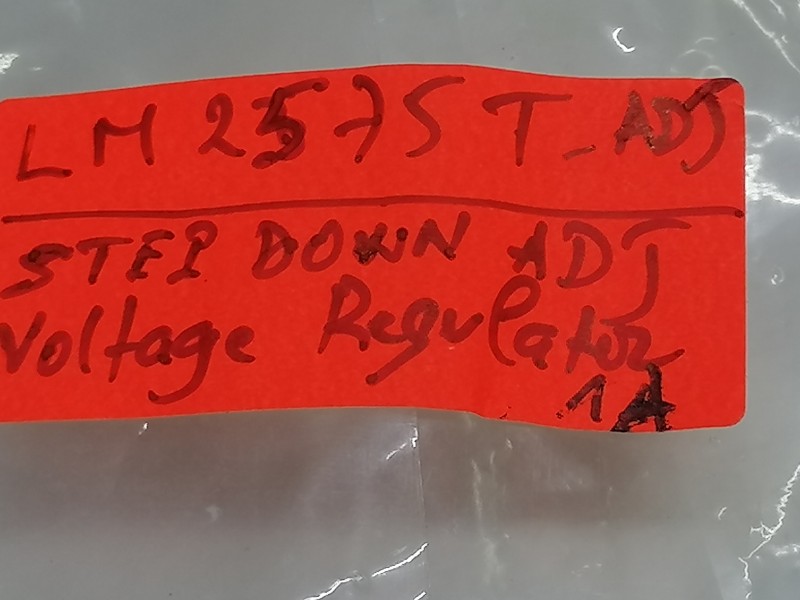 LM2575T-ADJ
STEP DOWN ADJ
Voltage Regulator
1A